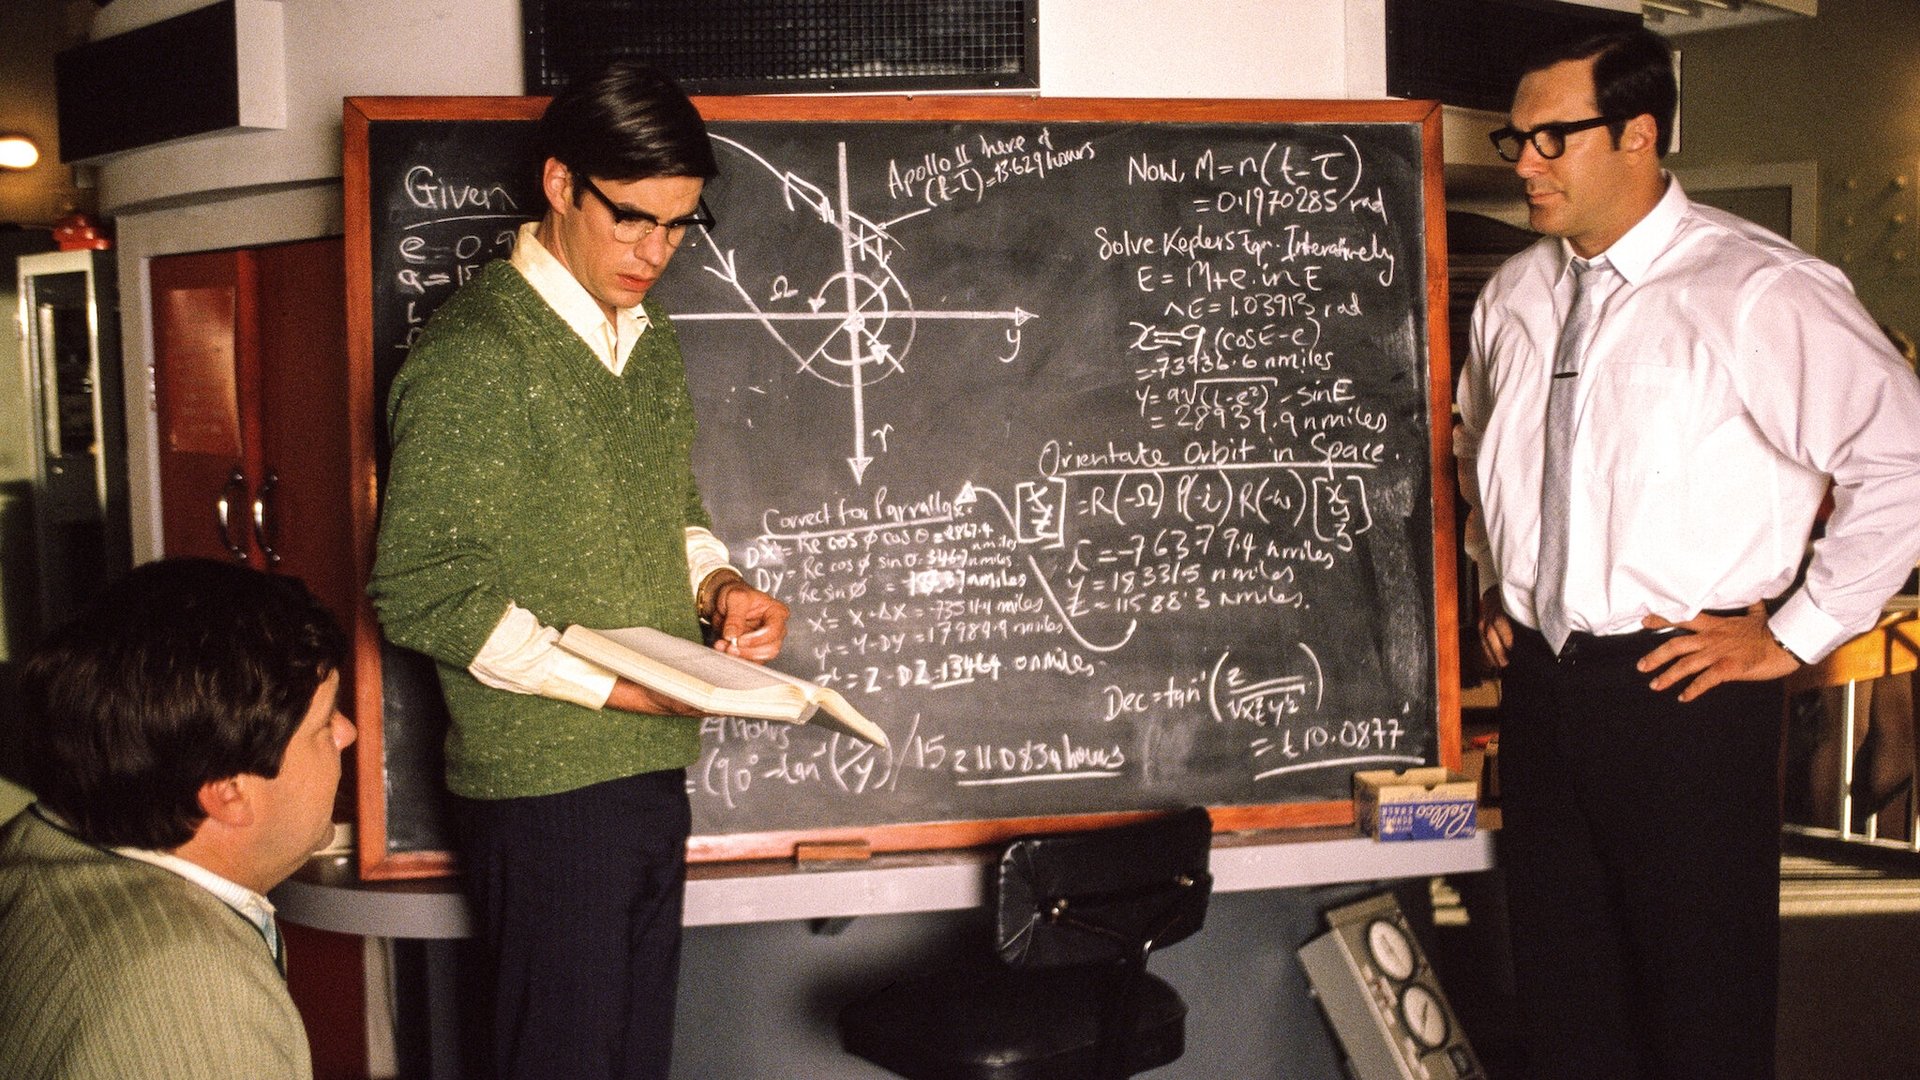 Given
e = 0.9
a = 15
L
Apollo 11 here if
(t-τ) = 13.629 hours
Ω
y
r
Now, M = n(t-τ)
= 0.1970285 rad
Solve Keplers Eqn. Interatively
E = M+e.inE
^E = 1.03913 rad
x = a (cosE-e)
= -73936.6 nmiles
y = a√(1-e²) - sinE
= 28939.9 nmiles
Orientate Orbit in Space.
= R(-Ω) R(-i) R(-ω)
x = -76379.4 nmiles
y = 18331.5 nmiles
z = 11588.3 nmiles.
Correct for Parrallax.
DX = Re cos φ cos θ = 2867.4 nmiles
DY = Re cos φ sin θ = nmiles
= Re sin φ = nmiles
x' = X - ΔX = miles
y' = Y - DY = 17989.9 nmiles
z' = Z - DZ = 13464 nmiles
Dec = tan⁻¹ (z/√x²+y²)
= 10.0877
hours
= (90° - tan⁻¹ ( /y)) / 15 = 11.0834 hours
Bellco